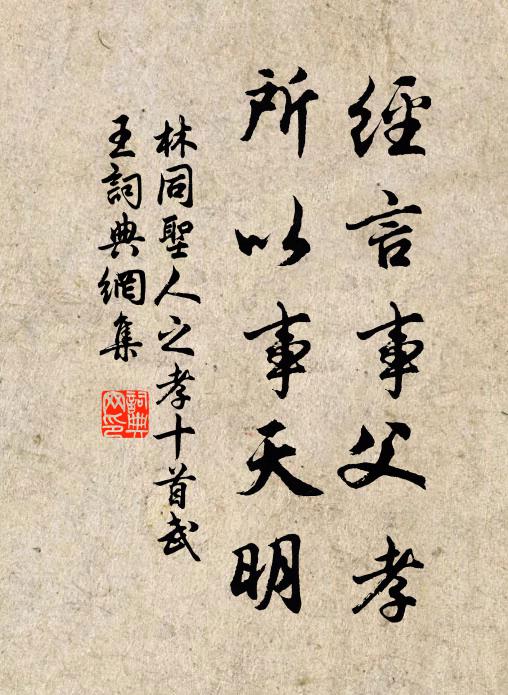 經言事父孝
所以事天明
林同聖人之孝十首武
王詞典網集
詞典
网印